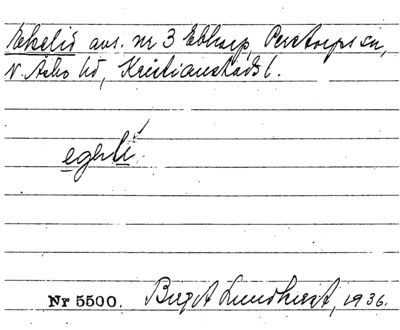 Ekelid avs. nr 3 Ebbarp, Perstorps sn,
N. Åsbo hd, Kristianstads l.
egəli
Nr 5500. Birgit Lundkvist, 1936.